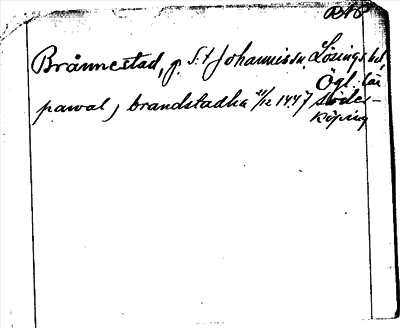 Brånnestad, p. S:t Johannis sn, Lösings hd,
Ögl. lär
pawal, brandstadha 21/12 1447 Söder-
köping